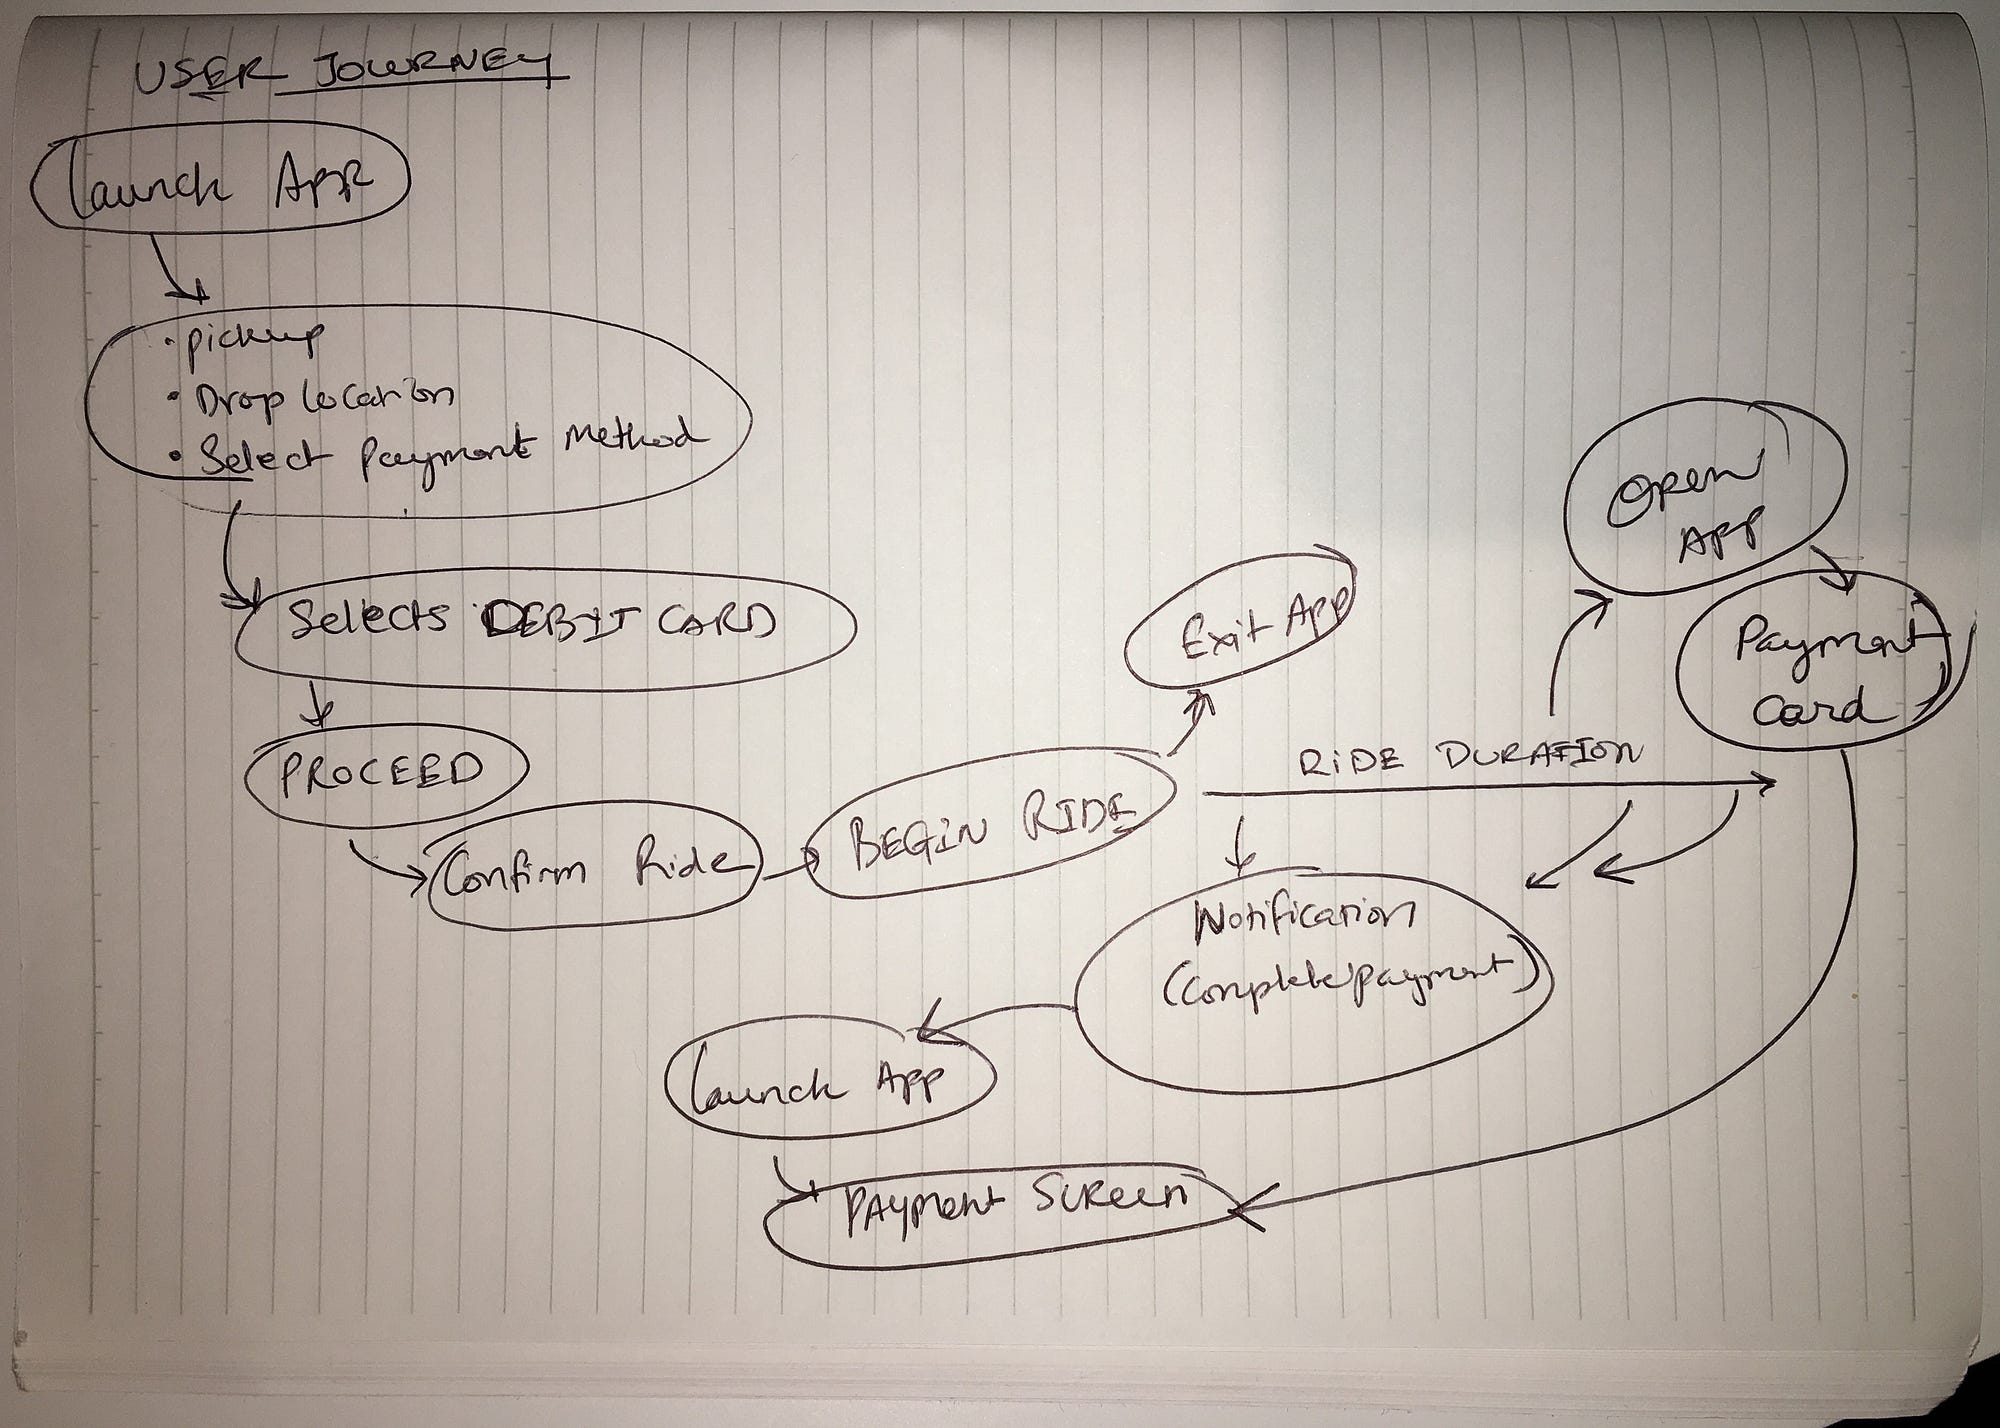 USER JOURNEY
Launch App
• pickup
• Drop location
• Select Payment Method
Selects DEBIT CARD
PROCEED
Confirm Ride
BEGIN RIDE
Exit App
RIDE DURATION
Open
App
Payment
Card
Notification
(Complete payment)
Launch App
Payment Screen